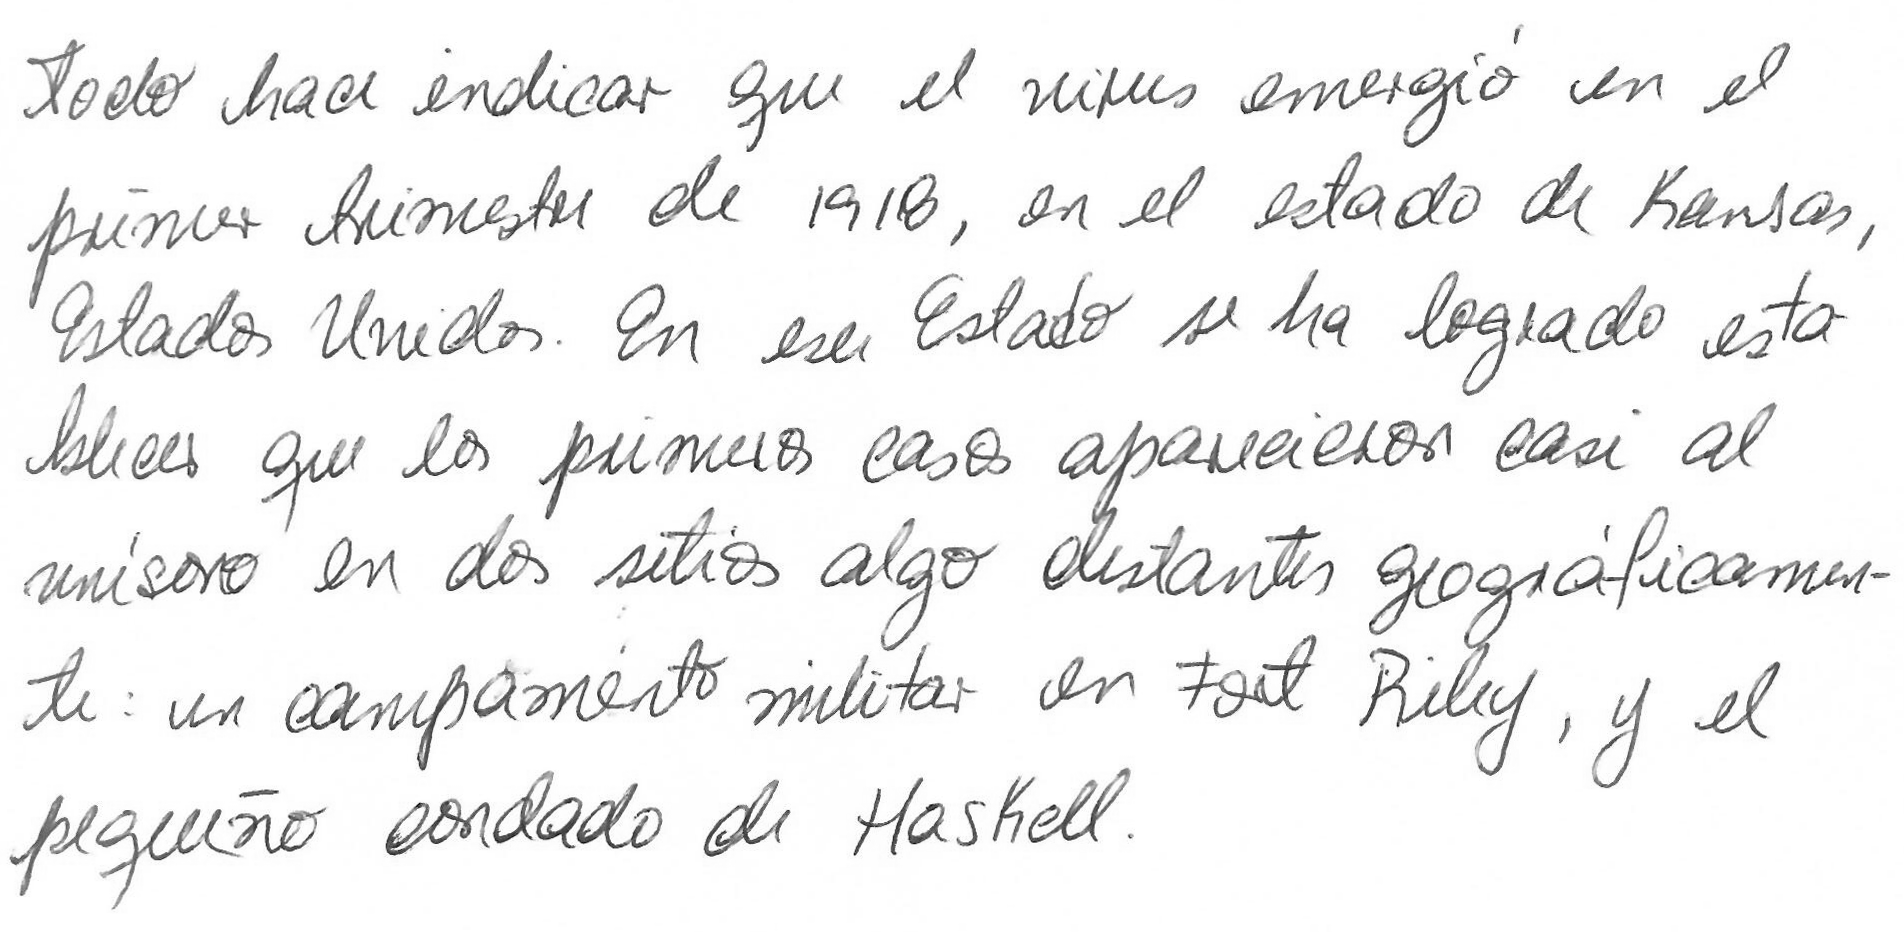 Todo hace indicar que el virus emergió en el
primer trimestre de 1918, en el estado de Kansas,
Estados Unidos. En ese Estado se ha logrado esta
blecer que los primeros casos aparecieron casi al
unísono en dos sitios algo distantes geográficamen-
te: un campamento militar en Fort Riley, y el
pequeño condado de Haskell.